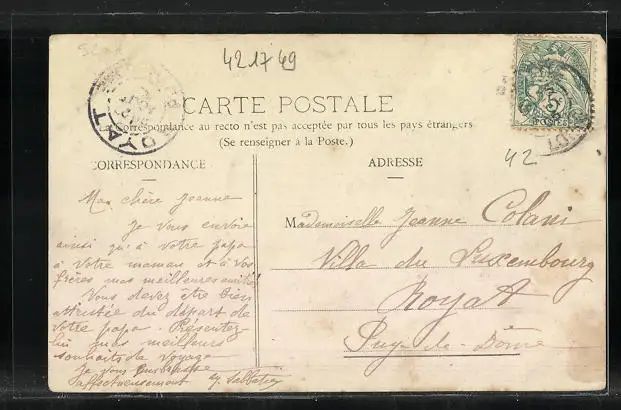 52
421749
ROYAT
CARTE POSTALE
La Correspondance au recto n'est pas acceptée par tous les pays étrangers
(Se renseigner à la Poste.)
42
CORRESPONDANCE
ADRESSE
Ma chère Jeanne
Je vous envoie
ainsi qu'à votre papa
à votre maman et à vos
frères mes meilleures amitiés
Vous devez être bien
attristée du départ de
votre papa. Présentez-
lui mes meilleurs
souhaits de voyage
Je vous embrasse
affectueusement
Mademoiselle Jeanne Colani
Villa du Luxembourg
Royat
Puy-de-Dôme